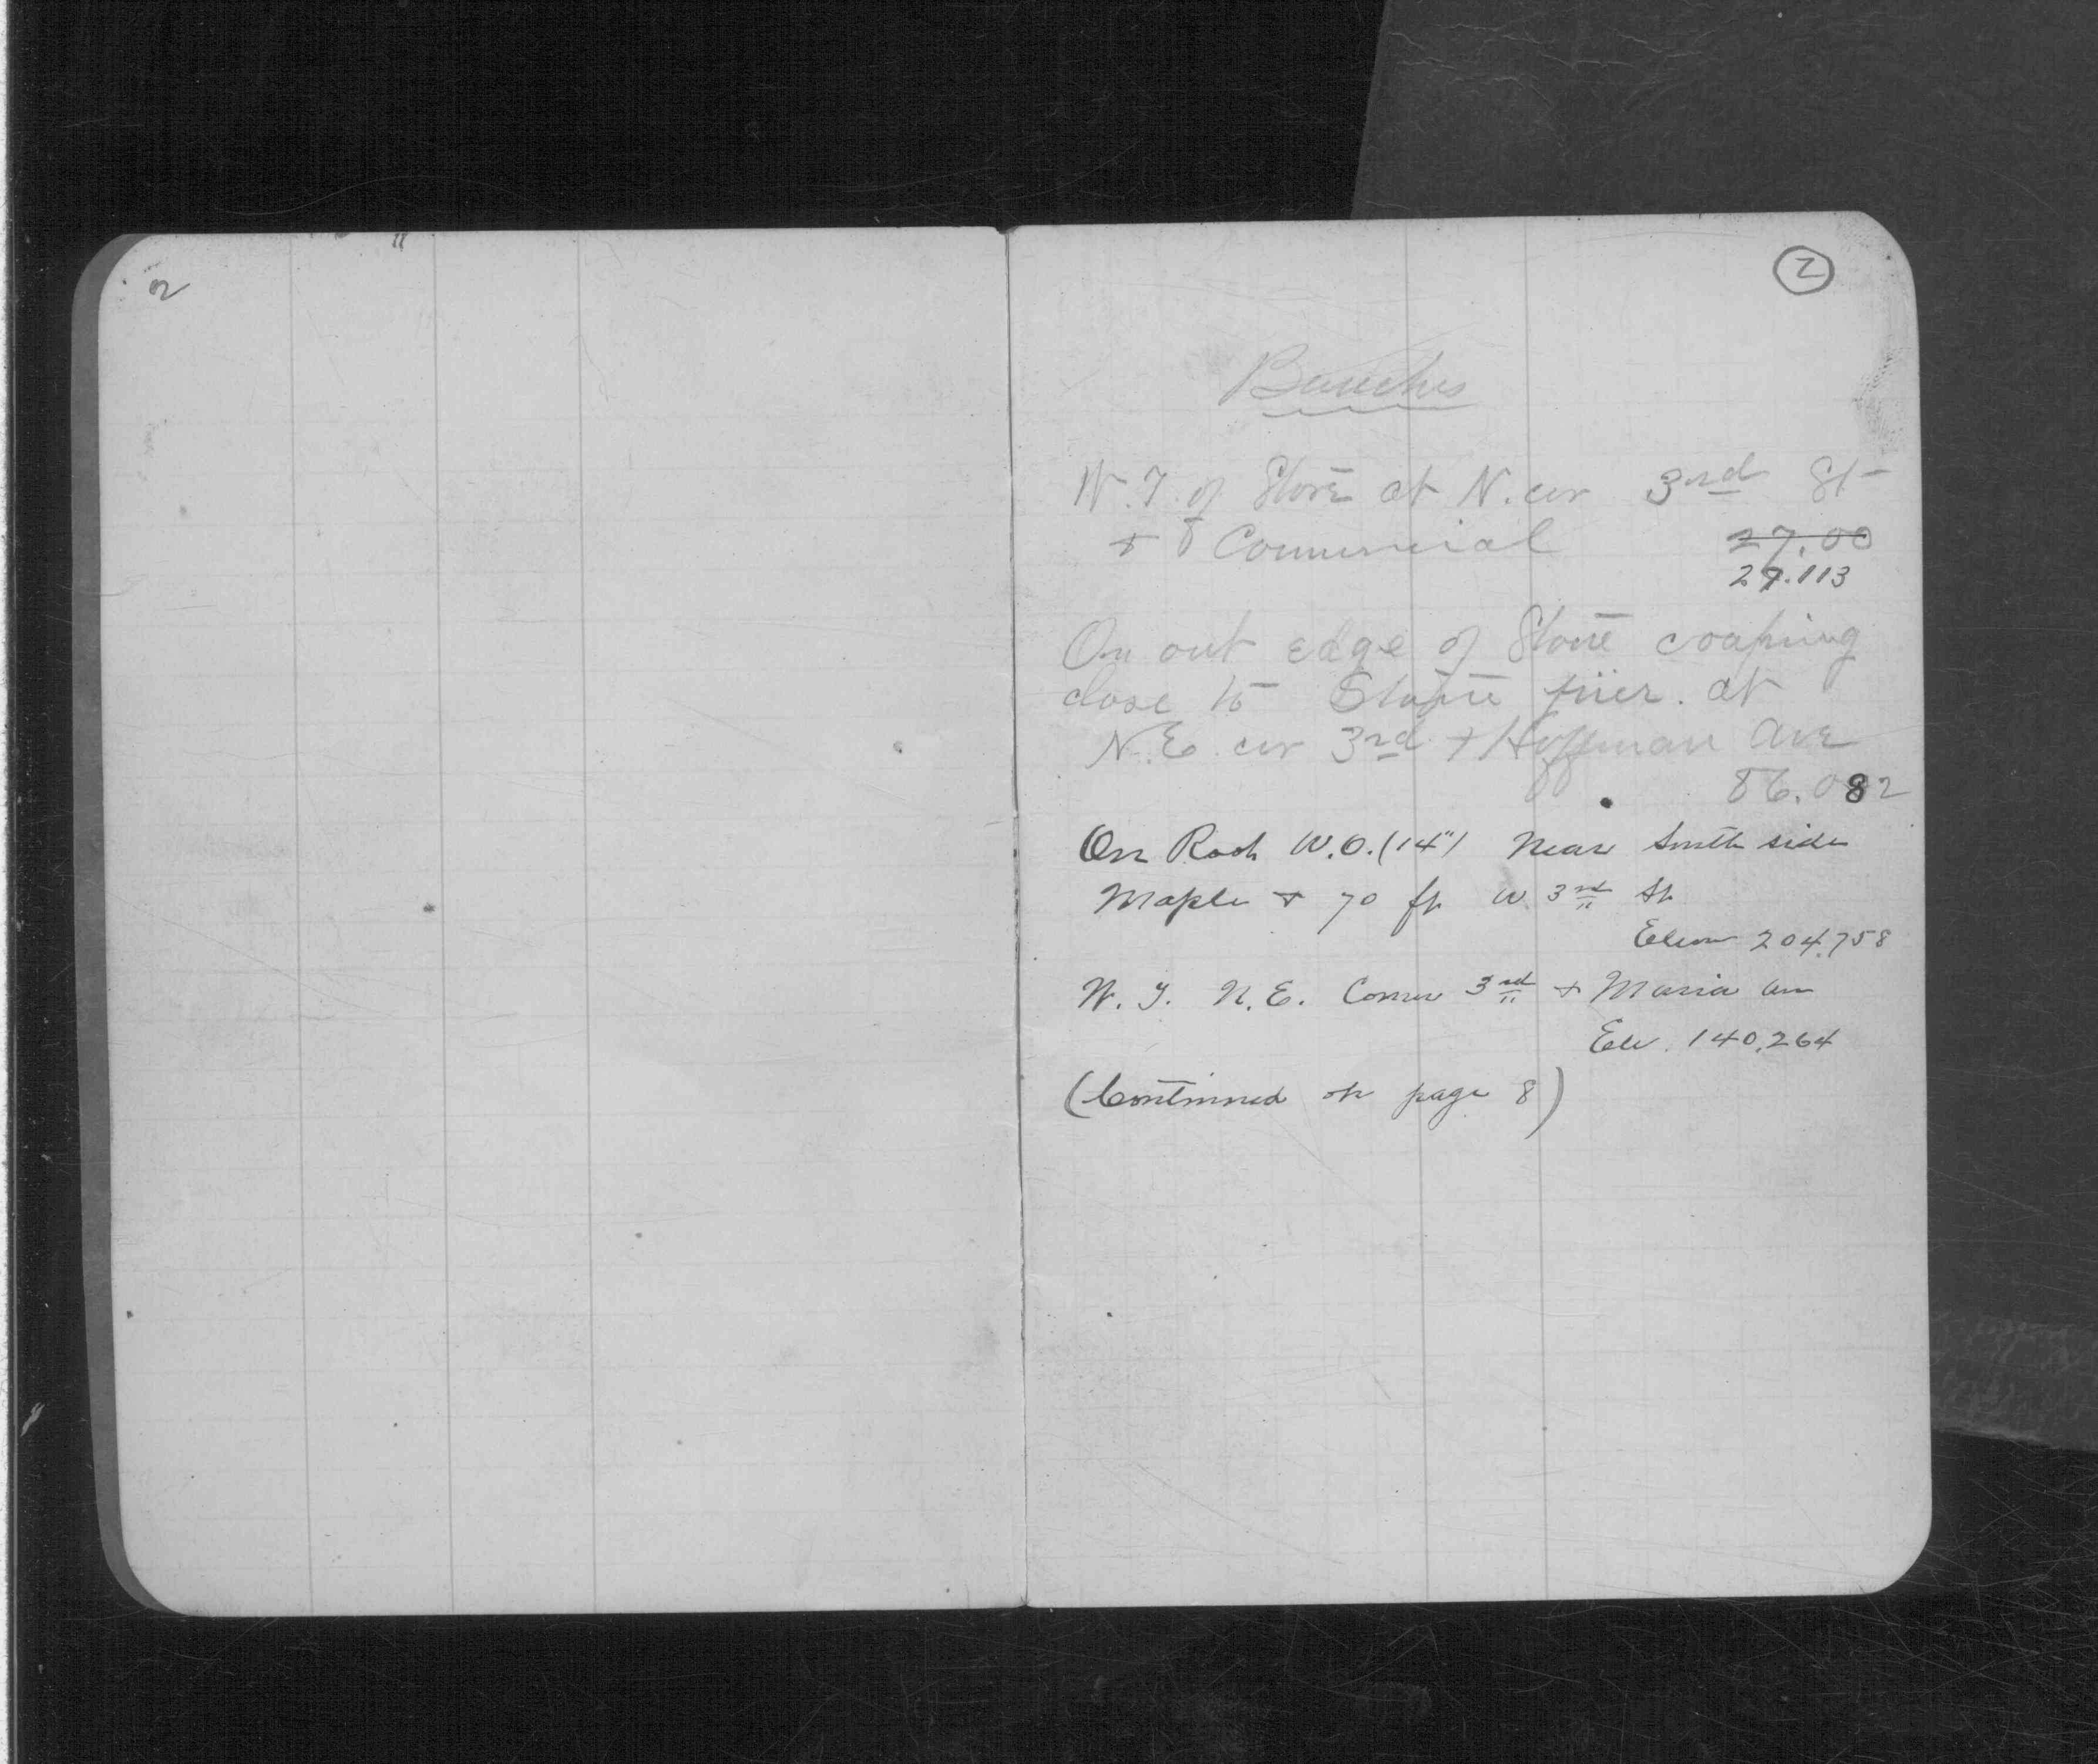 2
2
Benches
W.T. of Store at N. cor 3rd St
+ Commercial 27.00
27.113
On out edge of Stone coaping
close to Stone pier. at
N.E. cor 3rd + Hoffman Ave
86.082
On Rock W.O. (14") Near South side
Maple + 70 ft W 3rd St
Elev 204.758
W. T. N.E. Corner 3rd + Maria Ave
Elev. 140.264
(Continued on page 8)